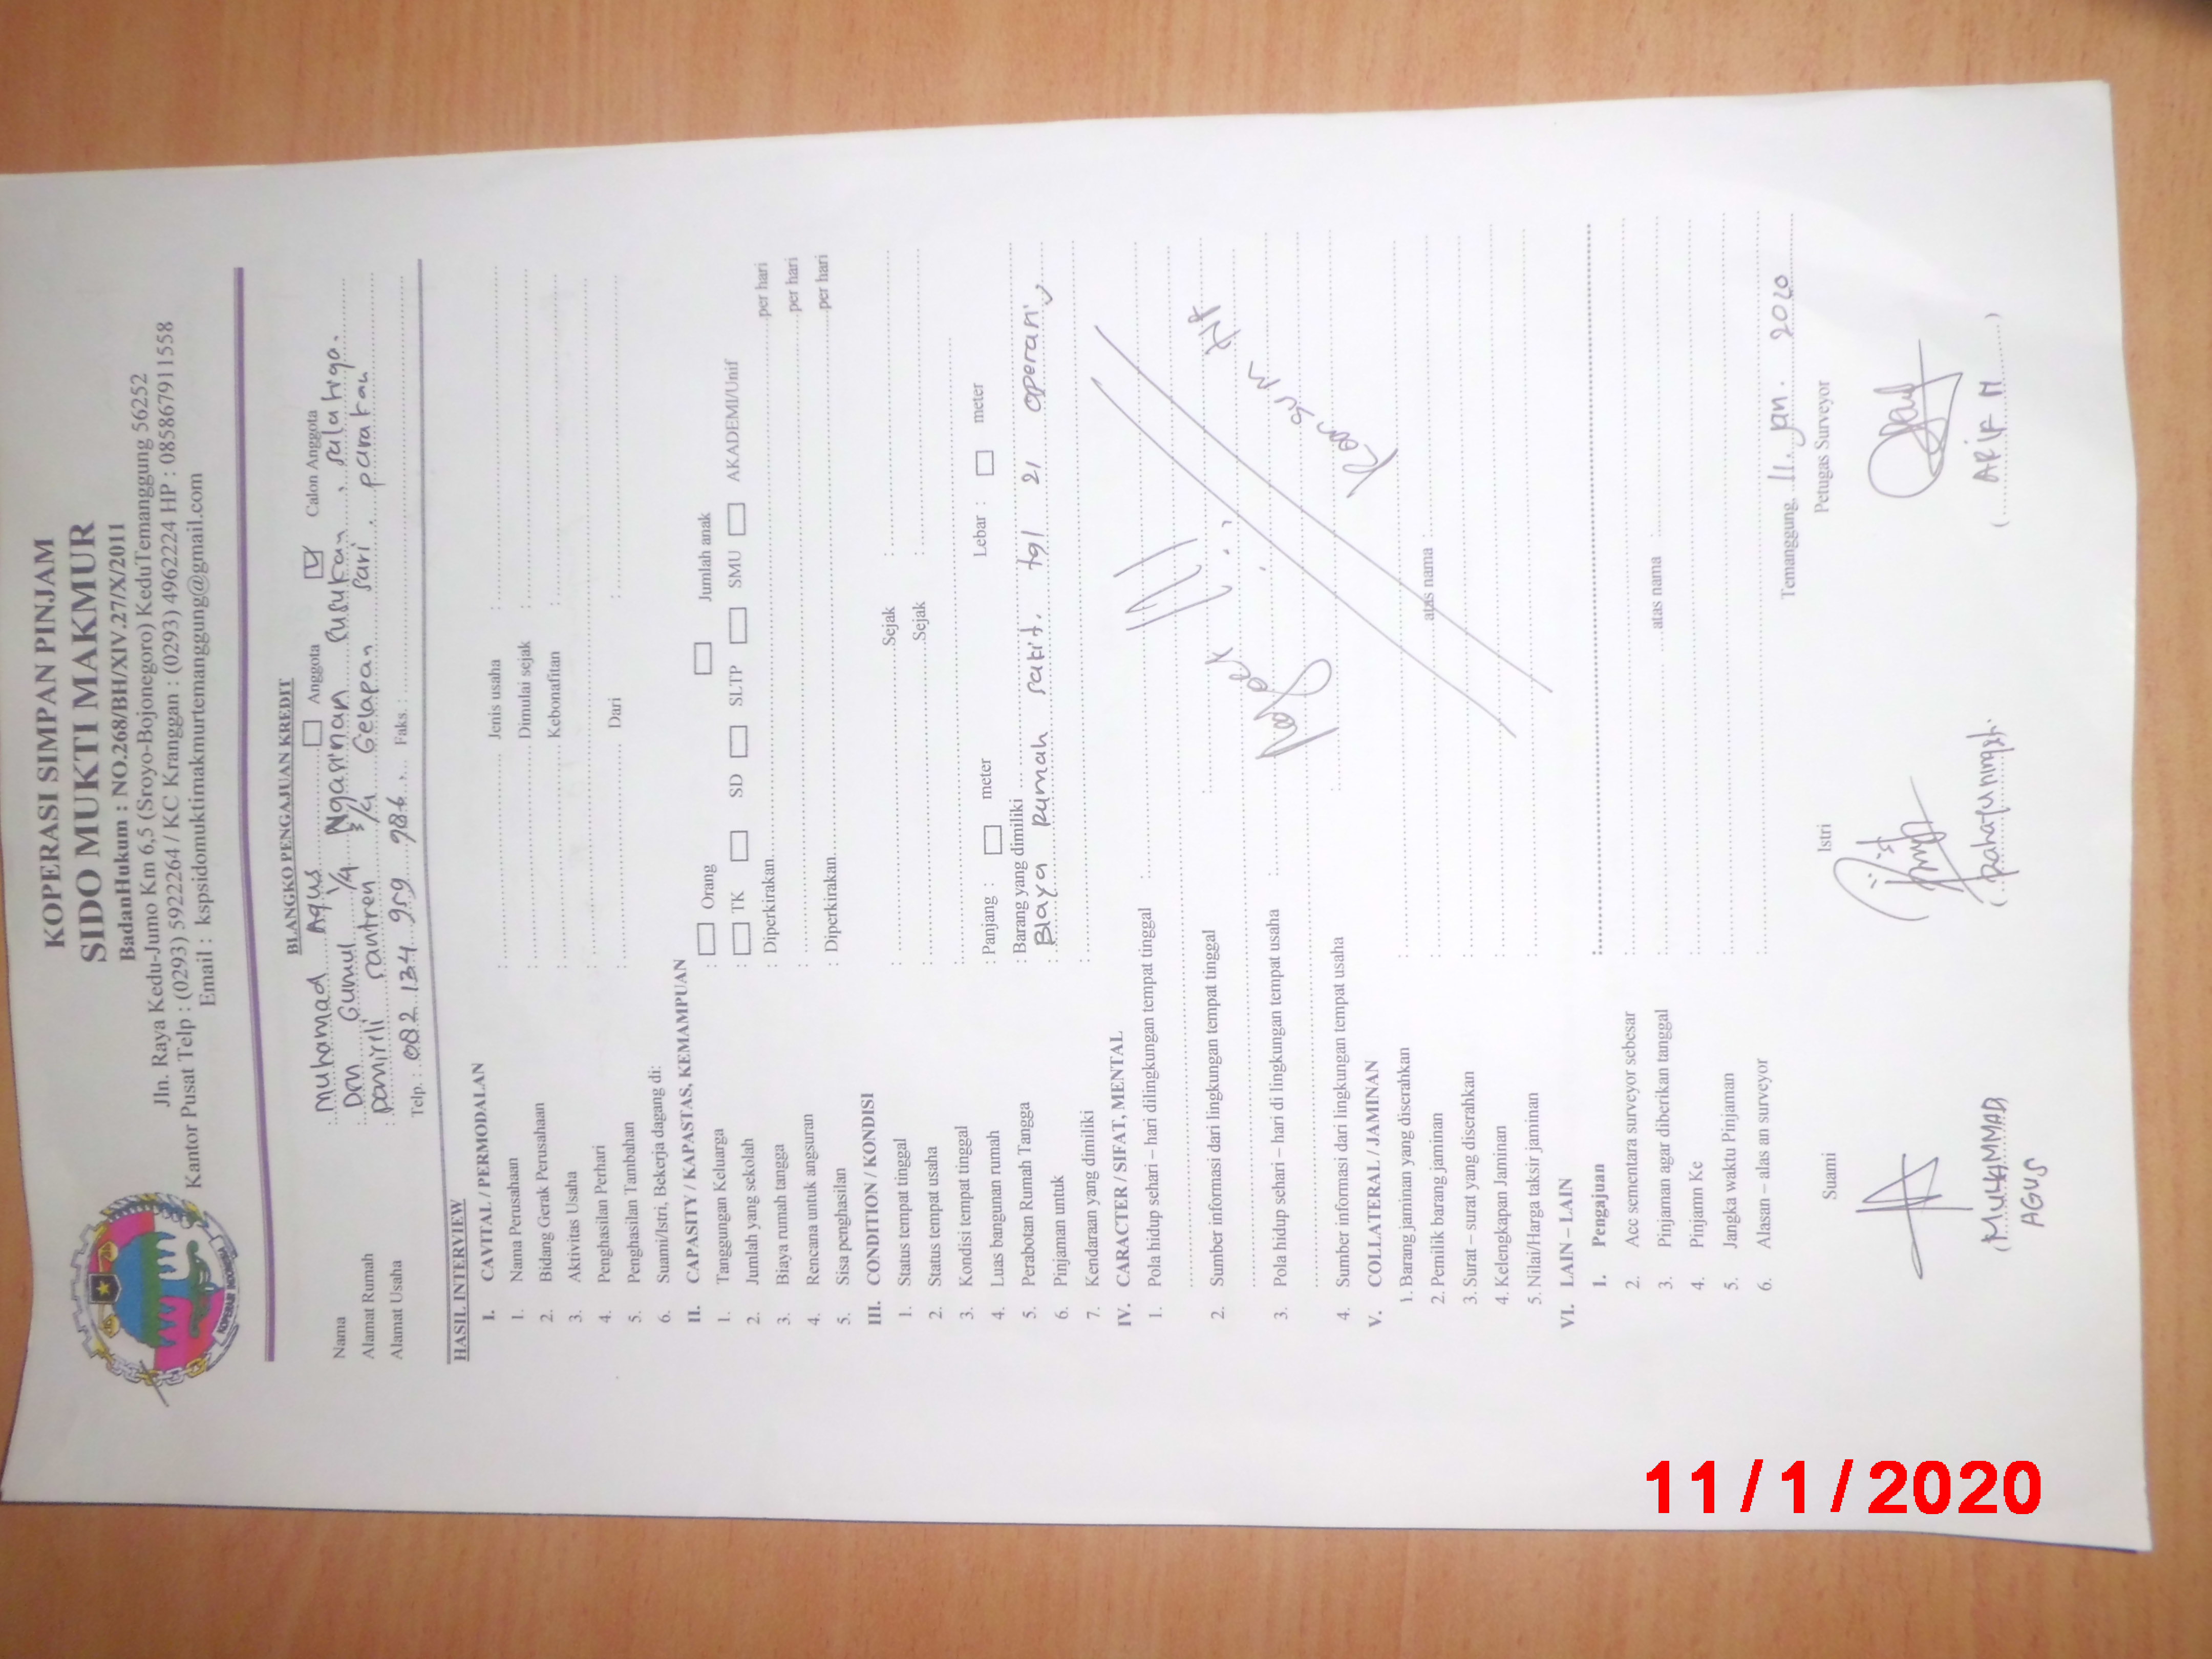 KOPERASI SIMPAN PINJAM
SIDO MUKTI MAKMUR
BadanHukum : NO.268/BH/XIV.27/X/2011
Jln. Raya Kedu-Jumo Km 6,5 (Sroyo-Bojonegoro) KeduTemanggung 56252
Kantor Pusat Telp : (0293) 5922264 / KC Kranggan : (0293) 4962224 HP : 085867911558
Email : kspsidomuktimakmurtemanggung@gmail.com
KOPERASI INDONESIA
BLANGKO PENGAJUAN KREDIT
Nama : Muhamad Agus Anggota Calon Anggota
Alamat Rumah : Dsn Gumul 1/4 Ngasinan Susukan, salatiga.
Alamat Usaha : Domisili santren 3/4 Gelapan sari. parakan
Telp. : 082 134 959 986, Faks. :
HASIL INTERVIEW
I. CAVITAL / PERMODALAN
1. Nama Perusahaan : Jenis usaha :
2. Bidang Gerak Perusahaan : Dimulai sejak :
3. Aktivitas Usaha : Kebonafitan :
4. Penghasilan Perhari :
5. Penghasilan Tambahan : Dari :
6. Suami/Istri, Bekerja dagang di:
II. CAPASITY / KAPASTAS, KEMAMPUAN
1. Tanggungan Keluarga : Orang Jumlah anak
2. Jumlah yang sekolah : TK SD SLTP SMU AKADEMI/Unif
3. Biaya rumah tangga : Diperkirakan per hari
4. Rencana untuk angsuran : per hari
5. Sisa penghasilan : Diperkirakan per hari
III. CONDITION / KONDISI
1. Status tempat tinggal : Sejak :
2. Status tempat usaha : Sejak :
3. Kondisi tempat tinggal :
4. Luas bangunan rumah : Panjang : meter Lebar : meter
5. Perabotan Rumah Tangga : Barang yang dimiliki
6. Pinjaman untuk : Biaya Rumah sakit. tgl 21 operasi
7. Kendaraan yang dimiliki :
IV. CARACTER / SIFAT, MENTAL
1. Pola hidup sehari – hari dilingkungan tempat tinggal :
2. Sumber informasi dari lingkungan tempat tinggal :
3. Pola hidup sehari – hari di lingkungan tempat usaha :
4. Sumber informasi dari lingkungan tempat usaha :
V. COLLATERAL / JAMINAN
1. Barang jaminan yang diserahkan :
2. Pemilik barang jaminan : atas nama :
3. Surat – surat yang diserahkan :
4. Kelengkapan Jaminan :
5. Nilai/Harga taksir jaminan :
VI. LAIN – LAIN
1. Pengajuan :
2. Acc sementara surveyor sebesar :
3. Pinjaman agar diberikan tanggal : atas nama :
4. Pinjamn Ke :
5. Jangka waktu Pinjaman :
6. Alasan – alas an surveyor :
Temanggung, 11. Jan. 2020
Suami Istri Petugas Surveyor
(MUHAMMAD AGUS ( ARIF M )
11/1/2020